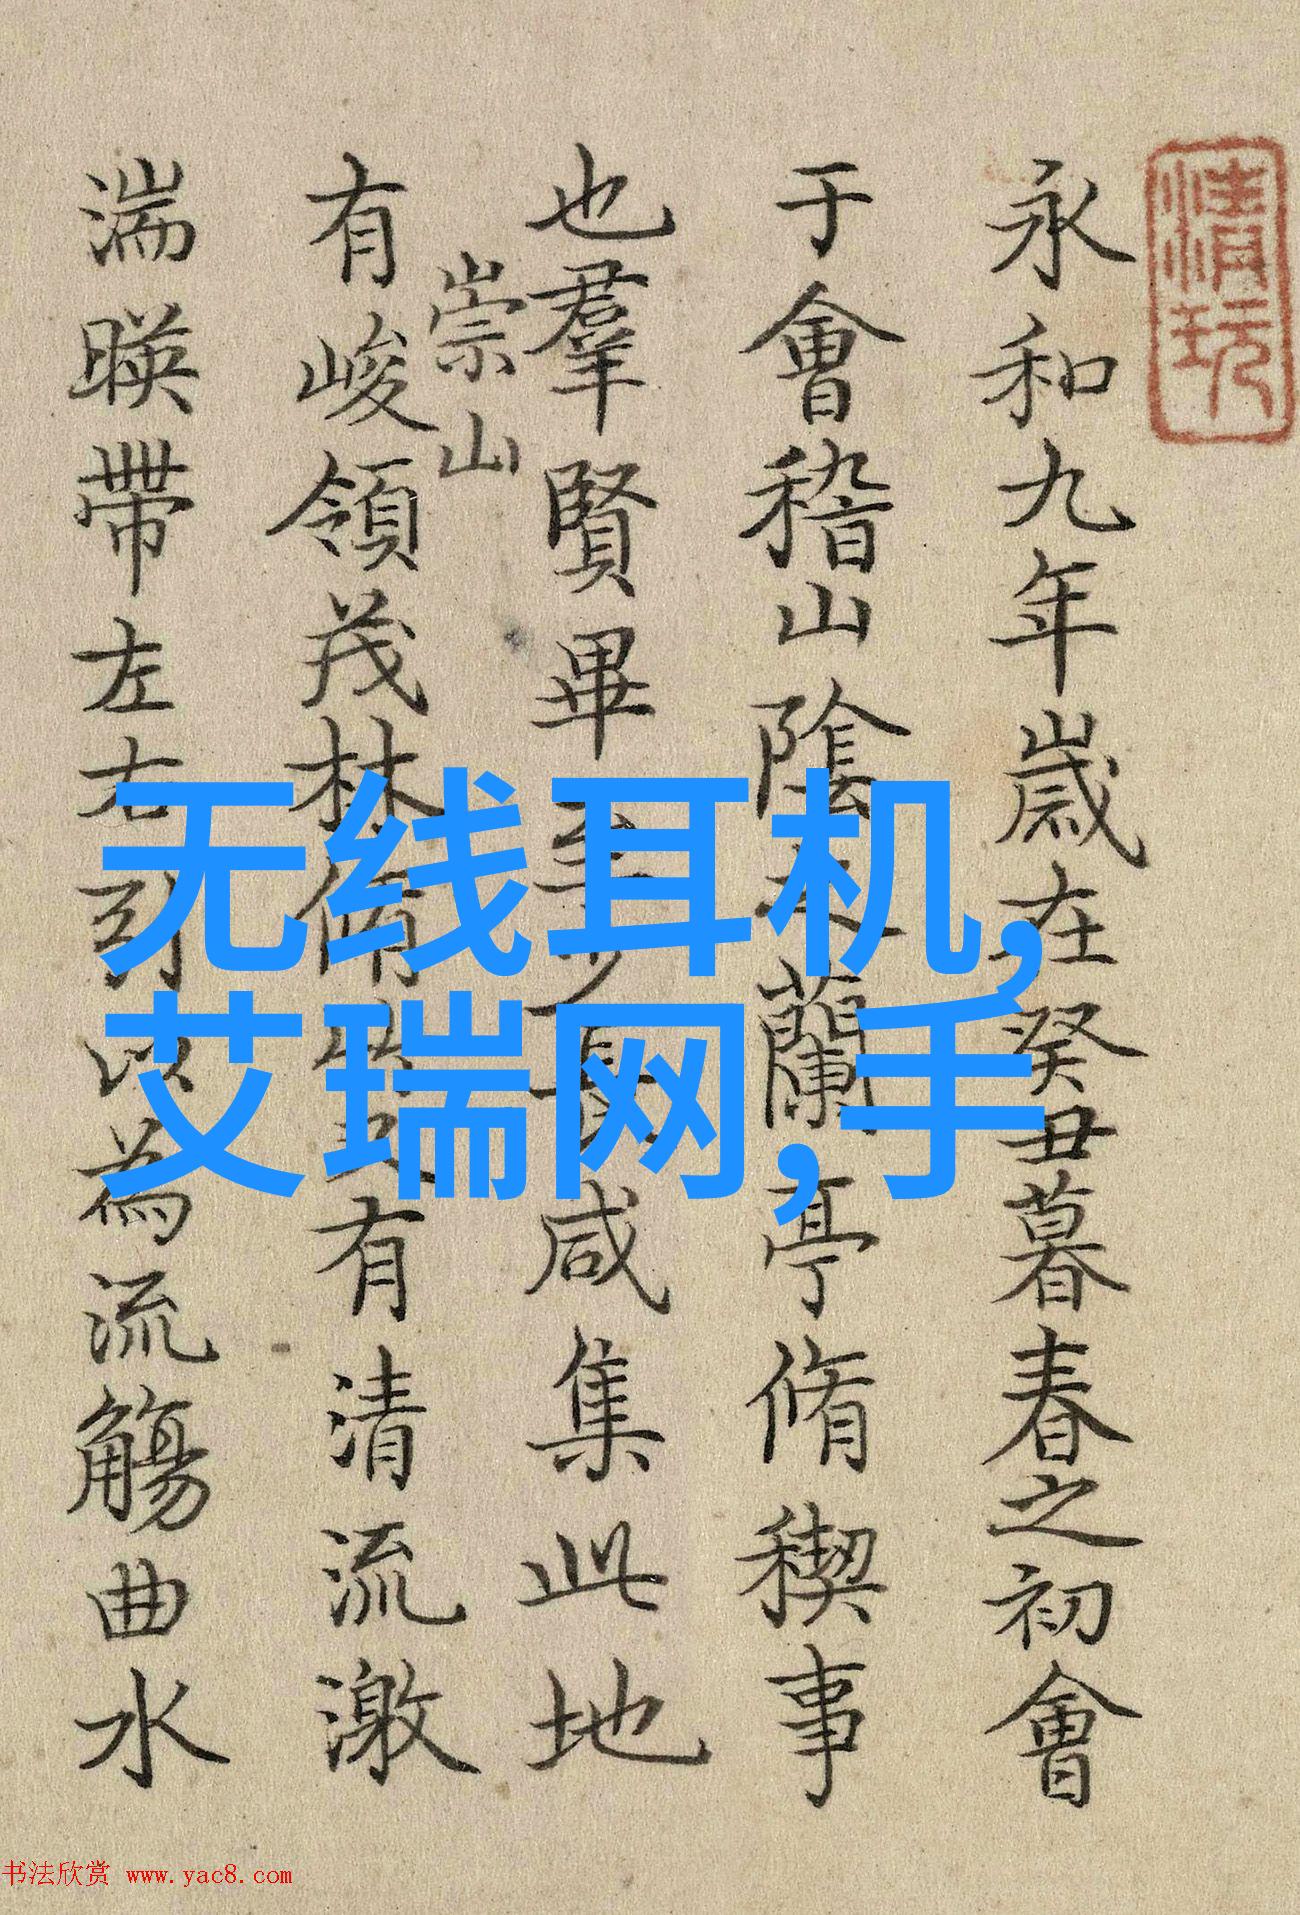 清玩
永和九年歲在癸丑暮春之初會
于會稽山陰之蘭亭脩稧事
也羣賢畢至少長咸集此地
崇山
有峻領茂林脩竹又有清流激
湍暎帶左右引以為流觴曲水
无线耳机,
艾瑞网,手
书法欣赏 www.yac8.com